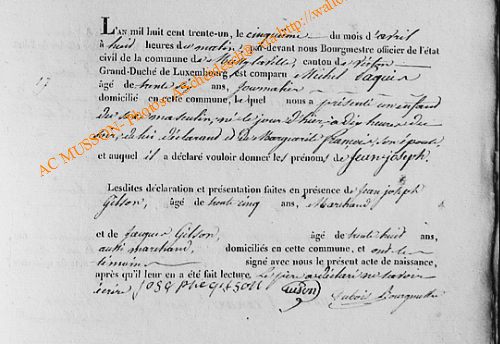 L'AN mil huit cent trente-un, le cinquième du mois d'avril
à huit heures du matin, par-devant nous Bourgmestre officier de l'état
civil de la commune de canton de Virton
Grand-Duché de Luxembourg est comparu Michel Jaquis
17
âgé de trente six ans, journalier
domicilié en cette commune, lequel nous a présenté un enfant
du sexe masculin, né le jour d'hier à dix heures du
soir, de lui déclarant et de Marguerite françois, son épouse
et auquel il a déclaré vouloir donner les prénoms de Jean joseph.
Lesdites déclaration et présentation faites en présence de jean joseph
Gilson, âgé de trente cinq ans, Marchand
et de Jacques Gilson, âgé de trente huit ans,
aussi marchand, domiciliés en cette commune, et ont les
témoins signé avec nous le présent acte de naissance,
après qu'il leur en a été fait lecture. Le père a déclaré ne savoir
écrire JOSEPHE GILSON
Dubois Bourgmestre
AC MUSSON- Photos: http://